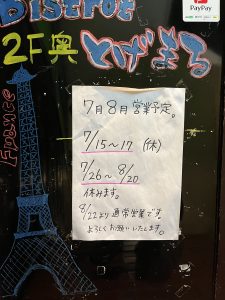 PayPay
Bistrot
2F奥 とげまる
France
7月8月 営業予定。
7/15~17 (休)
7/26~8/20
休みます。
8/22より通常営業です。
よろしくお願いいたします。